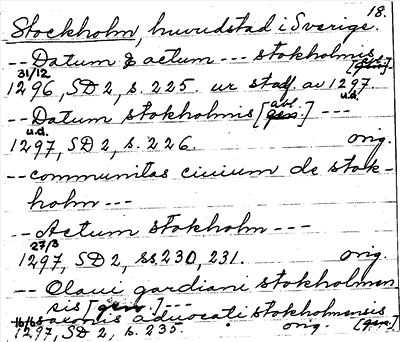 18.
Stockholm, huvudstad i Sverige.
-- Datum & actum --- stokholmis
31/12 [gen.]
1296, SD 2, s. 225. ur staff. av 1297.
u.d.
-- Datum stokholmis [gen.] abl. ---
u.d.
1297, SD 2, s. 226. orig.
-- communitas ciuium de stok-
holm ---
-- Actum stokholm ---
27/3
1297, SD 2, ss. 230, 231. orig.
-- Olaui gardiani stokholmen-
sis [gen.] ---
aduocati stokholmensis
1297, SD 2, s. 235. orig. [gen.]